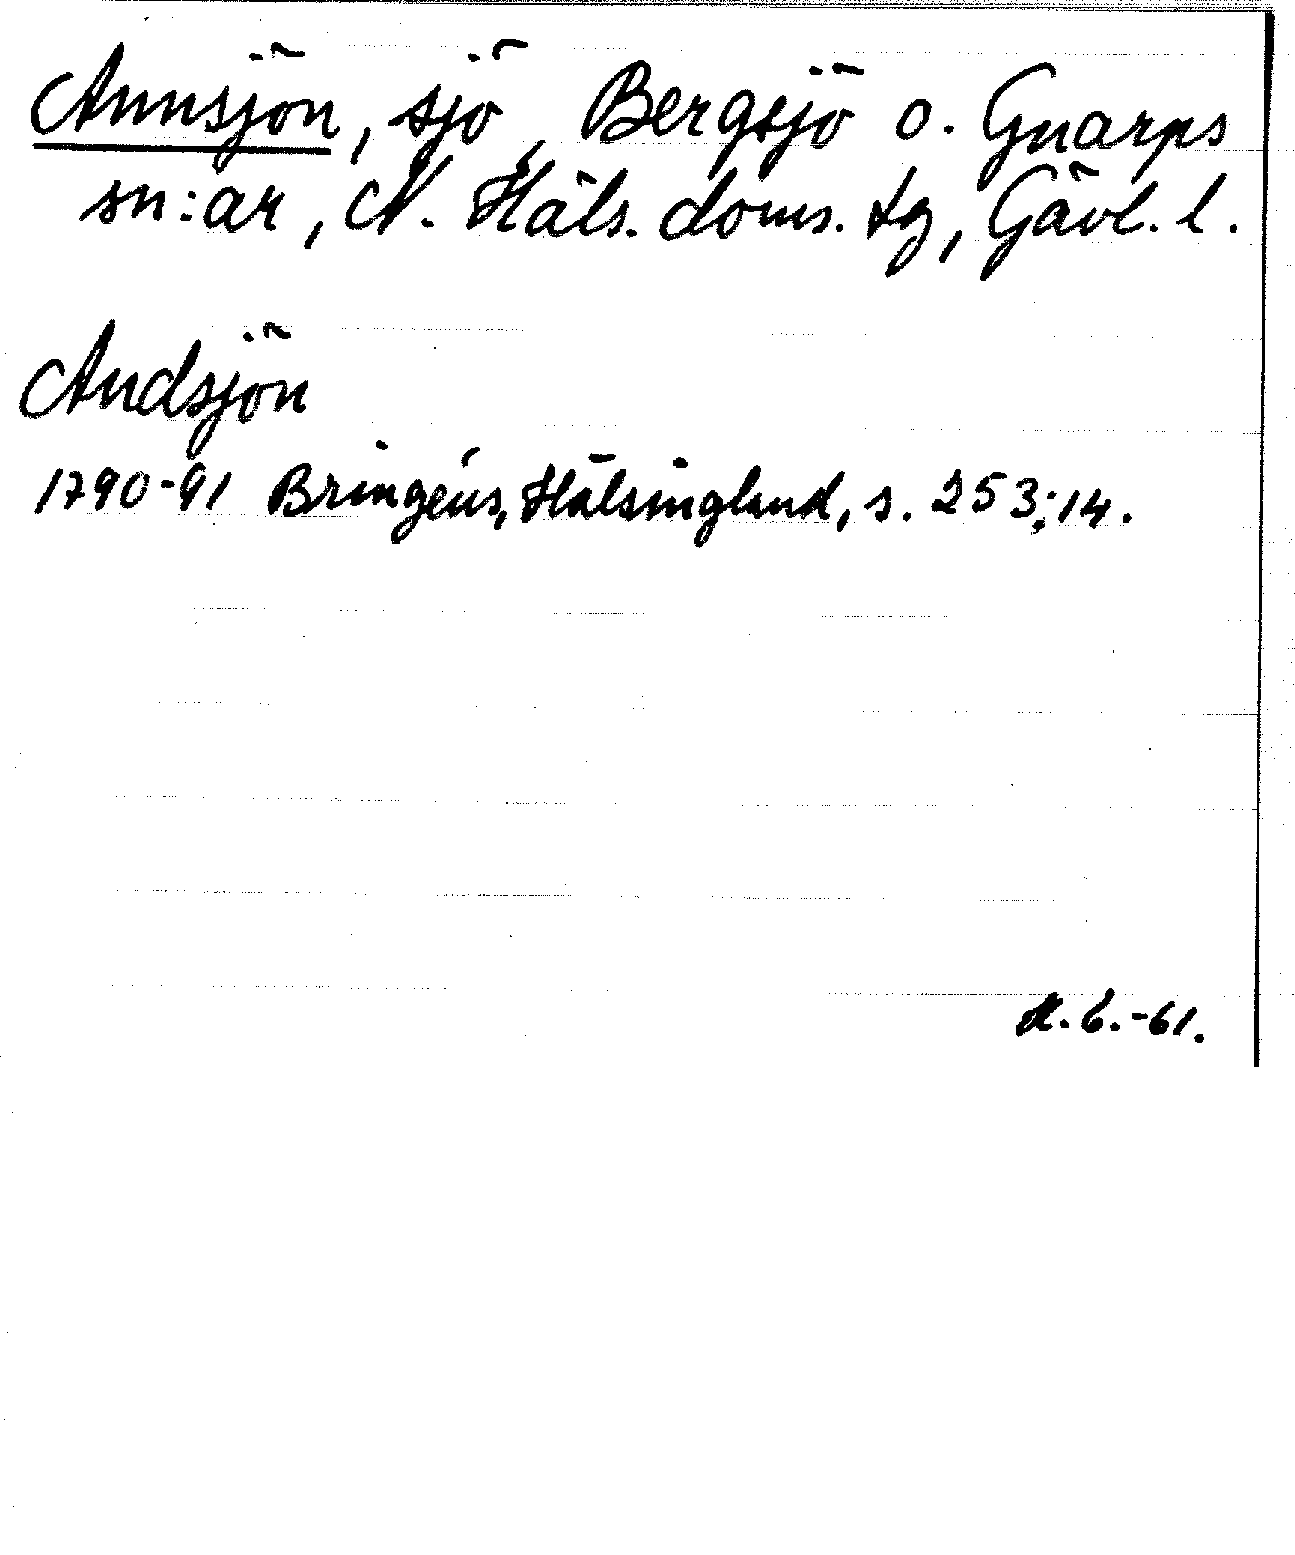 Annsjön, sjö, Bergsjö o. Gnarps
sn:ar, N. Häls. doms. tg, Gävl. l.
Andsjön
1790-91 Bringéus, Hälsingland, s. 253:14.
6.-61.